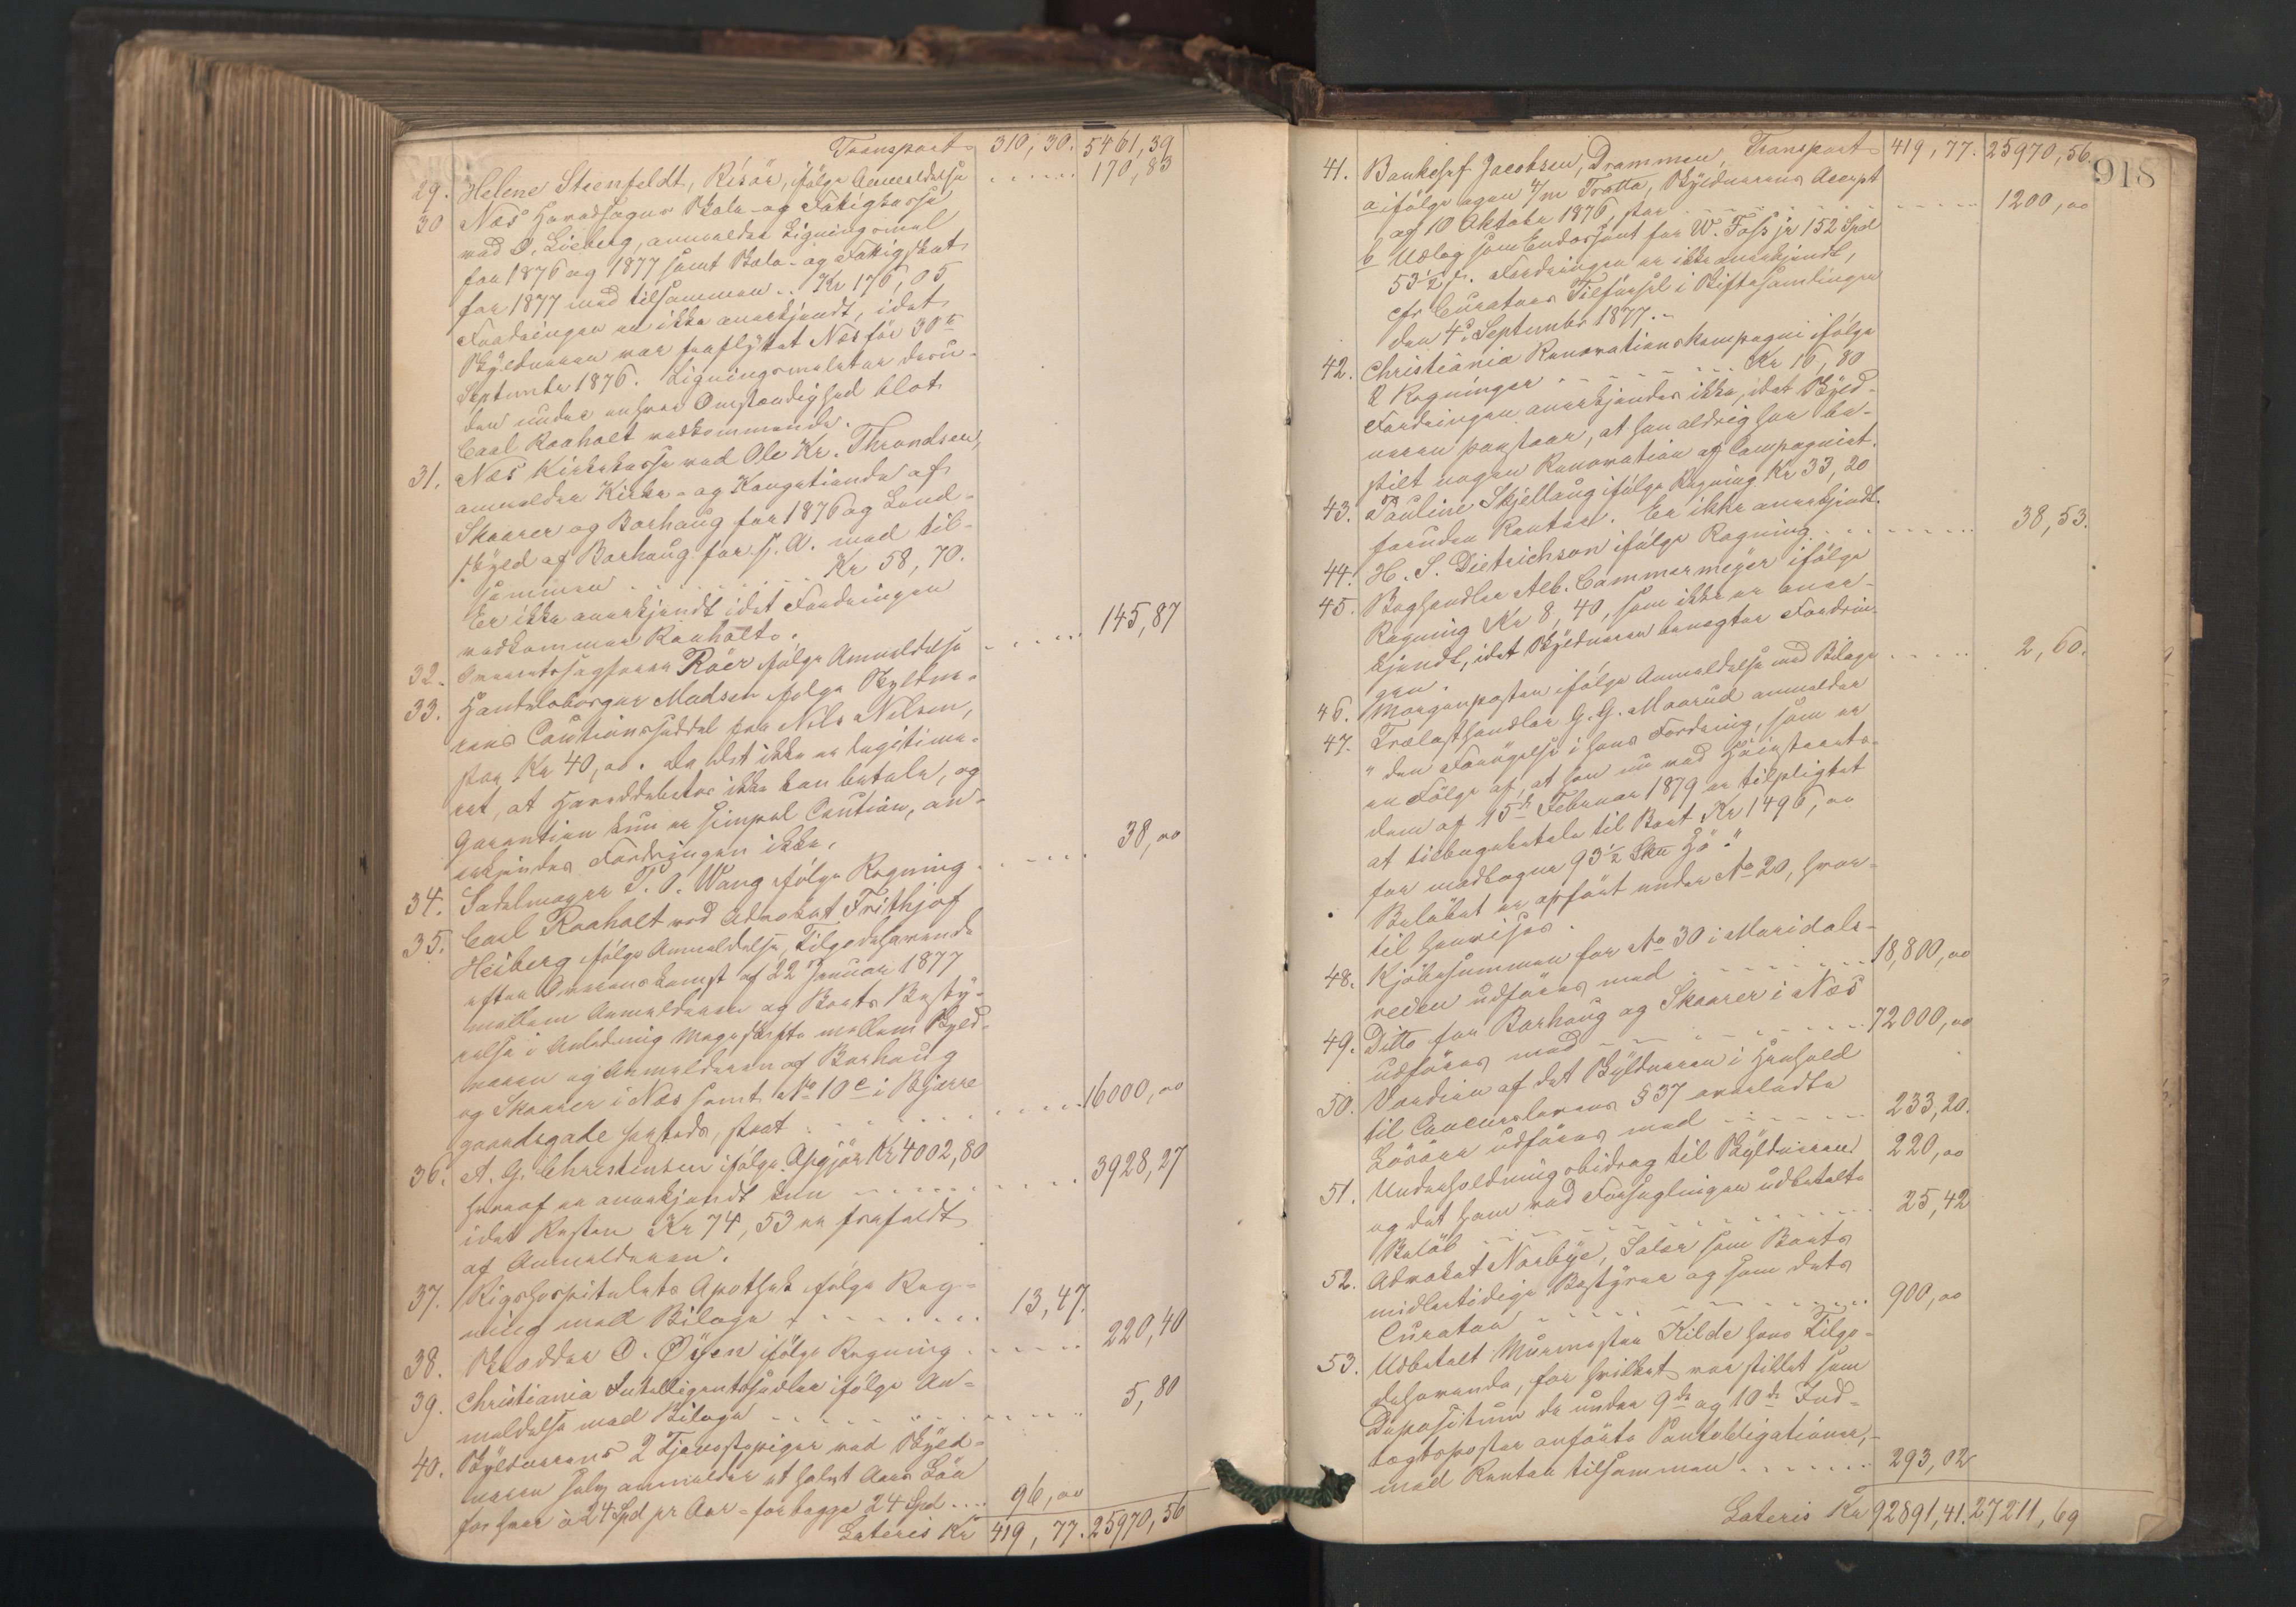 Transport 310,30. 5461,39
29. Helene Steenfeldt, Risør, ifølge Anmeldelse ...... 170,83
30 Næs Herredsogns Skole- og Fattigkasse
ved O. Lieberg, anmelder Ligningsmul
for 1876 og 1877 samt Skole- og Fattigskat
for 1877 med tilsammen .. Kr 176,05
Fordringen er ikke anerkjendt, idet
Skyldneren var fraflyttet Næs før 30te
September 1876. Ligningsmulkten desu-
den under enhver Omstændighed blot
Carl Raaholt vedkommende.
31. Næs Kirkekasse ved Ole Kr. Throndsen,
anmelder Kirke- og Kongetiende af
Skaarer og Borhaug for 1876 og Land-
skyld af Borhaug for s. A. med til-
sammen ........ Kr 58,70.
Er ikke anerkjendt idet Fordringen
vedkommer Raaholt.
32. Overretssagfører Röer ifølge Anmeldelse ..... 145,87
33. Handelsborger Madsen ifølge Skyldne-
rens Cautionsseddel for Nils Nilsen,
stor Kr 40,00. Da det ikke er legitime-
ret, at Hoveddebitor ikke kan betale, og
Garantien kun er simpel Caution, an-
erkjendes Fordringen ikke.
34. Sadelmager T. O. Wang ifølge Regning ..... 38,00
35. Carl Raaholt ved Advokat Frithjof
Heiberg ifølge Anmeldelse, Tilgodehavende
efter Overenskomst af 22 Januar 1877
mellem Anmelderen og Boets Besty-
relse i Anledning Mageskifte mellem Skyld-
neren og Anmelderen af Borhaug
og Skaarer i Næs samt No 10 c i Bjerre
gaardsgade hersteds, stort ........ 16000,00
36. A. G. Christensen ifølge Opgjør Kr 4002,80
heraf er anerkjendt kun ........ 3928,27
idet Resten Kr 74,53 er frafaldt
af Anmelderen.
37. Rigshospitalets Apothek ifølge Reg-
ning med Bilage ........ 13,47.
38. Skrædder O. Öyen ifølge Regning ...... 220,40
39. Christiania Intelligentssedler ifølge An-
meldelse med Bilage ........ 5,80
40. Skyldnerens 2 Tjenestepiger ved Skyld-
neren selv anmelder et halvt Aars Løn
for hver à 24 Spd pr Aar = for begge 24 Spd .... 96,00
Lateris Kr 419,77. 25970,56
918
Transport 419,77. 25970,56.
41. Bankchef Jacobsen, Drammen,
a ifølge egen 4/m Tratte, Skyldnerens Accept
af 10 Oktober 1876, stor ........ 1200,00
b Udlæg som Endossent for W. Foss jr 152 Spd
53½ s. Fordringen er ikke anerkjendt,
cfr Curators Tilførsel i Skiftesamlingen
den 4de September 1877.
42. Christiania Renovationskompagni ifølge
2 Regninger ........ Kr 16,80
Fordringen anerkjendes ikke, idet Skyld-
neren paastaar, at han aldrig har be-
stilt nogen Renovation af Compagniet.
43. Pauline Skjellaug ifølge Regning Kr 33,20
foruden Renter. Er ikke anerkjendt.
44. H. S. Dietrichson ifølge Regning ........ 38,53.
45. Boghandler Alb. Cammermeyer ifølge
Regning Kr 8,40, som ikke er aner-
kjendt, idet Skyldneren benegter Fordrin-
gen.
46. Morgenposten ifølge Anmeldelse med Bilage ..... 2,60.
47. Trælasthandler G. G. Maarud anmelder
" den Forøgelse i hans Fordring, som er
en Følge af, at han nu ved Höiesterets-
dom af 15de Februar 1879 er tilpligtet
at tilbagebetale til Boet Kr 1496,00
for modtagne 93½ Sku Hø."
Beløbet er opført under No 20, hvor-
til henvises.
48. Kjøbesummen for No 30 i Maridals-
veien udføres med ........ 18,800,00
49. Ditto for Borhaug og Skaarer i Næs
udføres med ........ 72000,00
50. Værdien af det Skyldneren i Henhold
til Concurslovens § 37 overladte
Løsøre udføres med ........ 233,20.
51. Underholdningsbidrag til Skyldneren
og det ham ved Forseglingen udbetalte
Beløb ........ 220,00
52. Advokat Norbye, Salær som Boets
midlertidige Bestyrer og som dets
Curator ........ 900,00
25,42
53. Udbetalt Murmester Kilde hans Tilgo-
dehavende, for hvilket var stillet som
Depositum de under 9de og 10de Ind-
tægtsposter anførte Panteobligationer,
med Renter tilsammen ........ 293,02
Lateris Kr 92891,41. 27211,69